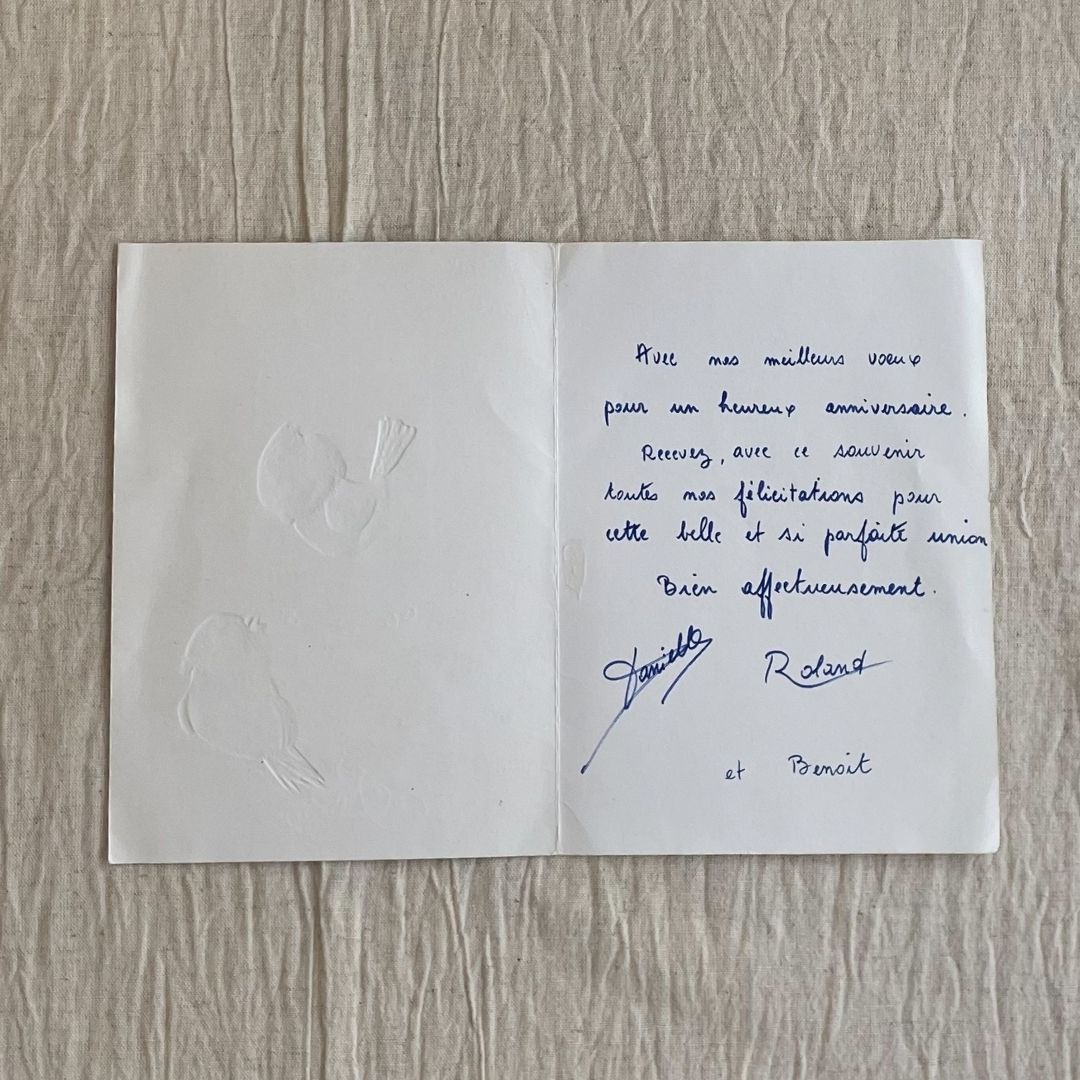 Avec nos meilleurs voeux
pour un heureux anniversaire.
Recevez, avec ce souvenir
toutes nos félicitations pour
cette belle et si parfaite union
Bien affectueusement.
Danielle Roland
et Benoit